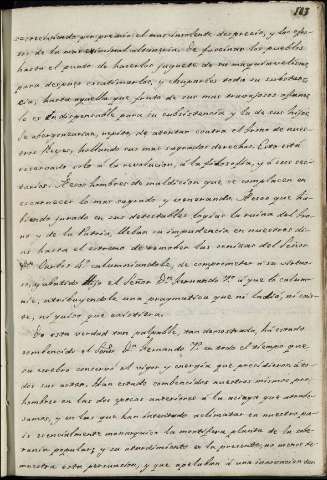 543
correspondido por premio, el mas insolente desprecio, y los efec-
tos de la mas criminal alevosia. De fascinar los pueblos
hasta el punto de hacerlos juguete de su maquiavelismo
para despues esclavizarlos, y chuparles toda su substan-
cia, hasta aquella que fruto de sus mas trabajosos afanes
le es indispensable para su subsistencia y la de sus hijos
se abergonzarian, repito, de atentar contra el trono de nues-
tros Reyes, hollando sus mas sagrados derechos. Esto está
reservado solo á la revolucion, á la filosofia, y á sus sec-
tarios. A esos hombres de maldicion que se complacen en
escarnecer lo mas sagrado y venerando. A esos que ha-
biendo jurado en sus detestables logias la ruina del tro-
no y de la Patria, llevan su impudencia en nuestros di-
as hasta el estremo de remober las cenizas del Señor
Dn. Carlos 4º calumniandole, de comprometer á su virtuo-
so, y abatido Hijo el Señor Dn. Fernando 7º á que lo calum-
nie, atribuyendole una pragmatica que ni ladió, ni ecsis-
te, ni quiso que ecsistiera.
De esta verdad tan palpable, tan demostrada, há estado
combencido el Señor Dn. Fernando 7º en todo el tiempo que
su cerebro conservó el vigor y energía que presidieron á to-
dos sus actos. Han estado combencidos nuestros mismos pro-
hombres en las dos epocas anteriores á la aciaga que atrabe-
samos, y en las que han intentado aclimatar en nuestro pa-
is esencialmente monarquico la mortifera planta de la sobe-
rania popular; y su atrebimiento en la presente, no menos de-
muestra esta persuacion, y que apelaban á una innovacion tan